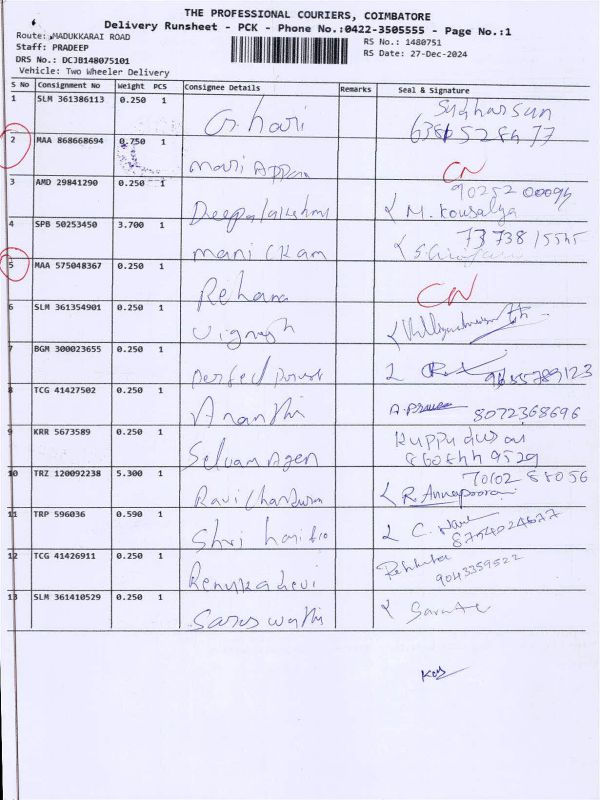 THE PROFESSIONAL COURIERS, COIMBATORE
Delivery Runsheet - PCK - Phone No.:0422-3505555 - Page No.:1
Route: MADUKKARAI ROAD
RS No.: 1480751
Staff: PRADEEP
RS Date: 27-Dec-2024
DRS No.: DCJB148075101
Vehicle: Two Wheeler Delivery
S No Consignment No Weight PCS Consignee Details Remarks Seal & Signature
1 SLM 361386113 0.250 1 G. hari Sudharsun
2 MAA 868668694 0.750 1 Mari Appan CN
3 AMD 29841290 0.250 1 Deepalakshmi M. Kousalya
4 SPB 50253450 3.700 1 Manickam
5 MAA 575048367 0.250 1 Rehana CN
6 SLM 361354901 0.250 1 Vignesh
7 BGM 300023655 0.250 1 Perfect
8 TCG 41427502 0.250 1 Ananthi 8072368696
9 KRR 5673589 0.250 1 Selvam Agen Kuppudurai
10 TRZ 120092238 5.300 1 Ravi Chandran R. Annapoorani
11 TRP 596036 0.590 1 Shri C.
12 TCG 41426911 0.250 1 Renukadevi 9043359522
13 SLM 361410529 0.250 1 Saraswathi